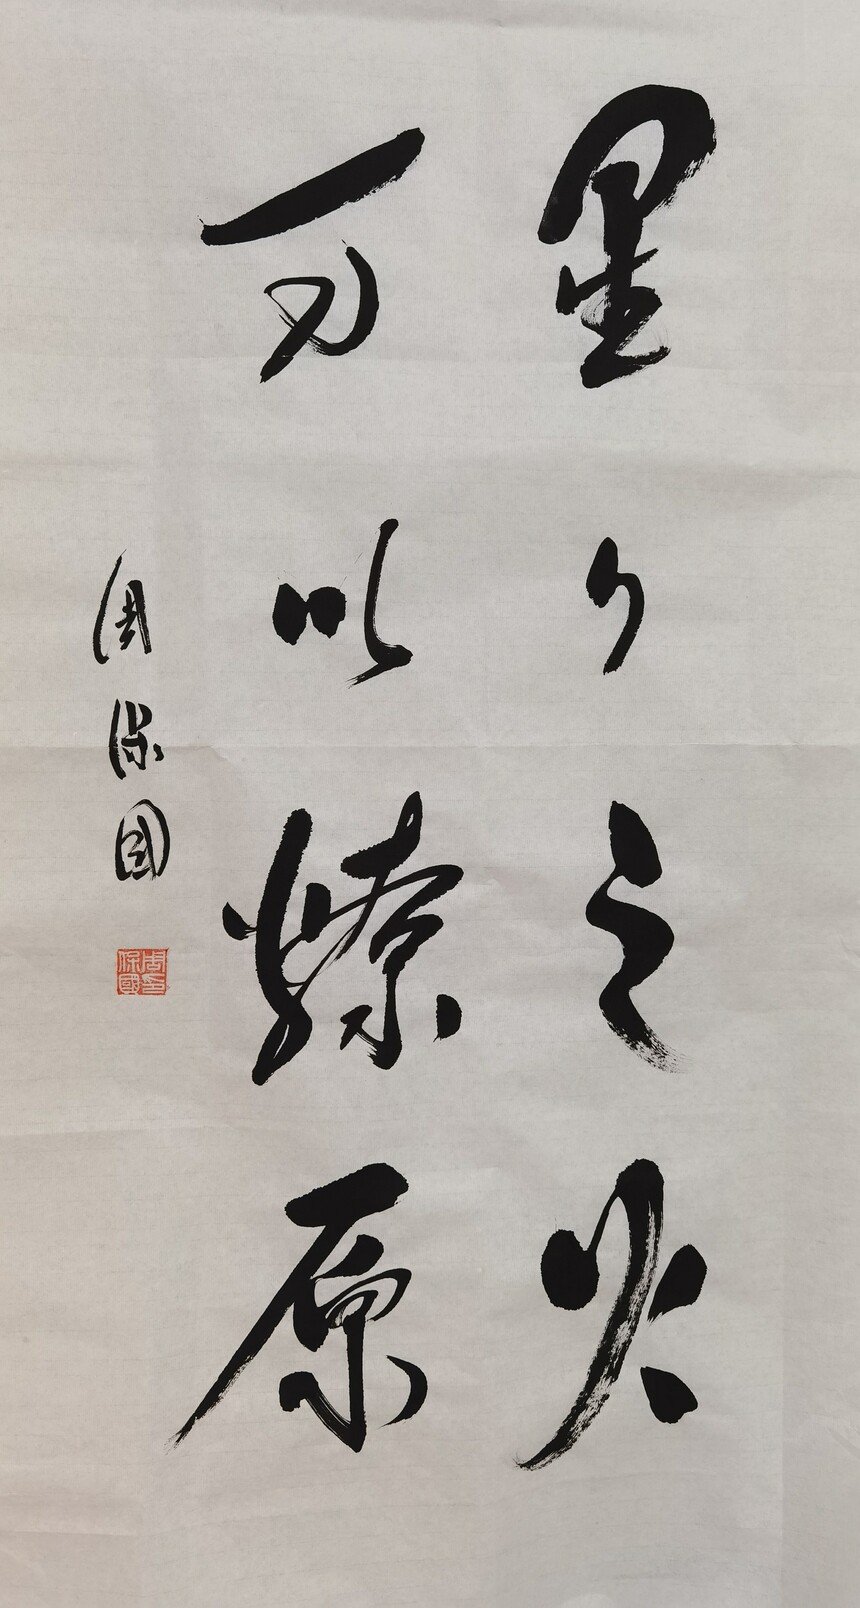 星々之火
可以燎原
周保国
周印
保國